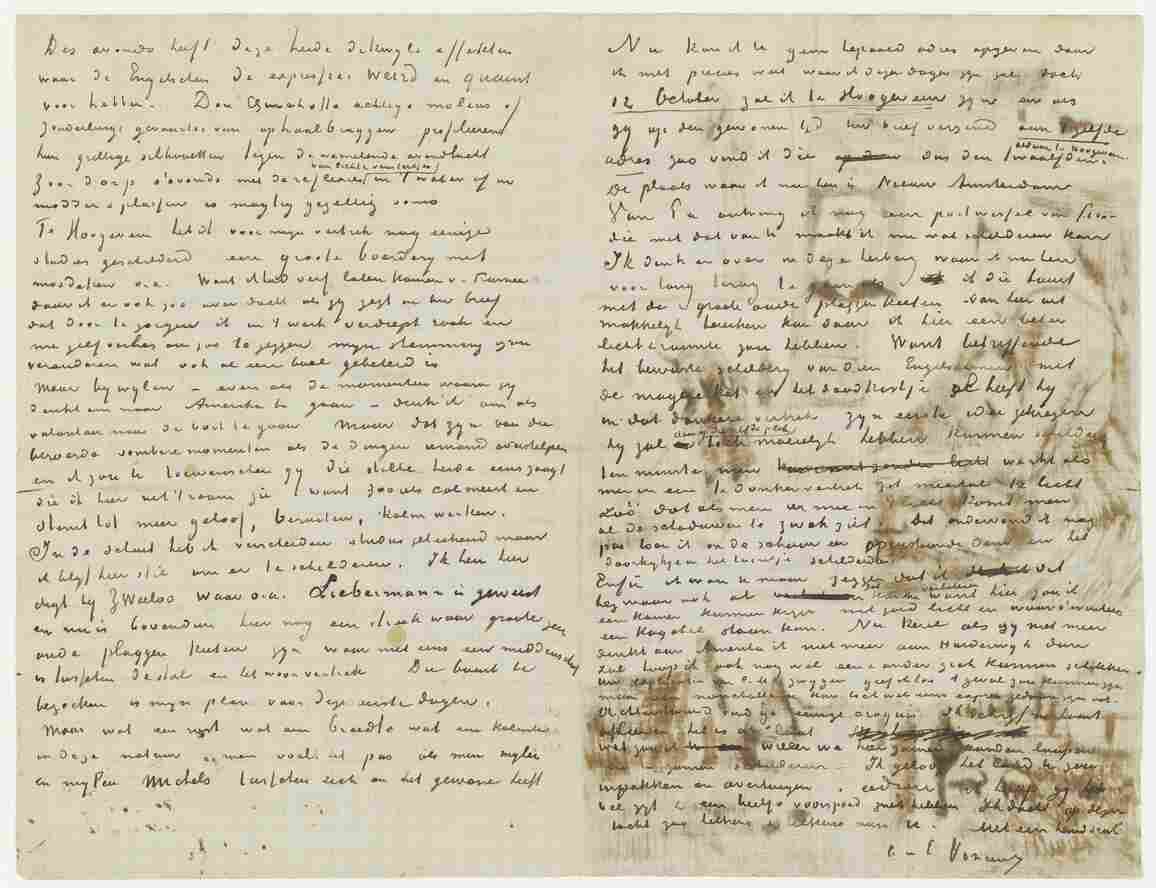 Des avonds heeft deze heide dikwijls effekten
waar de Engelschen de expressies Weird en quaint
voor hebben. Don Quichotte achtige molens of
zonderlinge gevaartes van ophaalbruggen profileeren
hun grillige silhouetten tegen de wemelende avondlucht
van lichte vensterjes
Zoo'n dorp s'avonds met de reflecties in 't water of in
modder & plassen is magtig gezellig soms
Te Hoogeveen heb ik voor mijn vertrek nog eenige
studies geschilderd een groote boerderij met
mosdaken o.a. Want ik had verf laten komen v. Furnee
daar ik er ook zoo over dacht als gij zegt in uw brief
dat door te zorgen ik in 't werk verdiept raak en
me zelf verlies om zoo te zeggen mijn stemming zou
veranderen wat ook al een boel gebeterd is
Maar bij wijlen – even als de momenten waarin gij
denkt om naar Amerika te gaan – denk ik om als
volontair naar de Oost te gaan Maar dat zijn van die
beroerde sombere momenten als de dingen iemand overstelpen
en ik zou U toewenschen gij die stille heide eens zaagt
die ik hier uit 't raam zie want zoo iets calmeert en
stemt tot meer geloof, berusten, kalm werken.
In de schuit heb ik verscheiden studies geteekend maar
ik blijf hier om er te schilderen. Ik ben hier
digt bij Zweeloo waar o.a. Liebermann is geweest
en nu is bovendien hier nog een streek waar groote zeer
oude plaggen keeten zijn waar niet eens een middenschot
is tusschen de stal en het woonvertrek Die buurt te
bezoeken is mijn plan voor deze eerste dagen.
Maar wat een rust wat een breedte wat een kalmte
in deze natuur men voelt het pas als men mijlen
en mijlen Michels tusschen zich en het gewone heeft
Nu kan ik U geen bepaald adres opgeven daar
ik niet precies weet waar ik dezer dagen zijn zal, doch
12 October zal ik te Hoogeveen zijn en als
gij op den gewonen tijd uw brief verzend aan 't zelfde
adres zoo vind ik die dus den twaalfden
aldaar te Hoogeveen.
De plaats waar ik nu ben is Nieuw Amsterdam
Van Pa ontving ik nog een postwissel van
die met dat van U maakt ik nu wat schilderen kan
Ik denk er over in deze herberg waar ik nu ben
voor lang terug te als ik die buurt
met de groote oude plaggen keeten van hier uit
makkelijk bereiken kan daar ik hier een beter
licht & ruimte zou hebben. Want betreffende
het bewuste schilderij van dien Engelschman met
de magere kat en het doodkistje al heeft hij
in dat donkere vertrek zijn eerste idee gekregen
hij zal toch moeielijk hebben kunnen schilderen
ten minste, men werkt als
men in een te donker vertrek zit meestal te licht
zoo dat als men er mee in het licht komt men
al de schaduwen te zwak ziet. dat ondervond ik nog
pas toen ik in de schuur een openstaande deur en het
doorkijkje in het tuintje schilderde.
Enfin ik wou U maar zeggen dat ik
verhelpen
want hier zou ik
een kamer kunnen krijgen met goed licht en waar s'winters
een kagchel staan kan. Nu kerel als gij niet meer
denkt aan Amerika ik niet meer aan Harderwijk dan
zal hoop ik ook nog wel een en ander zich kunnen schikken.
willen we hier samen
samen schilderen. Ik geloof het eind te
inpakken en overwegen.
wel zijt & een beetje voorspoed moogt hebben
Met een handdruk
t. à t. Vincent